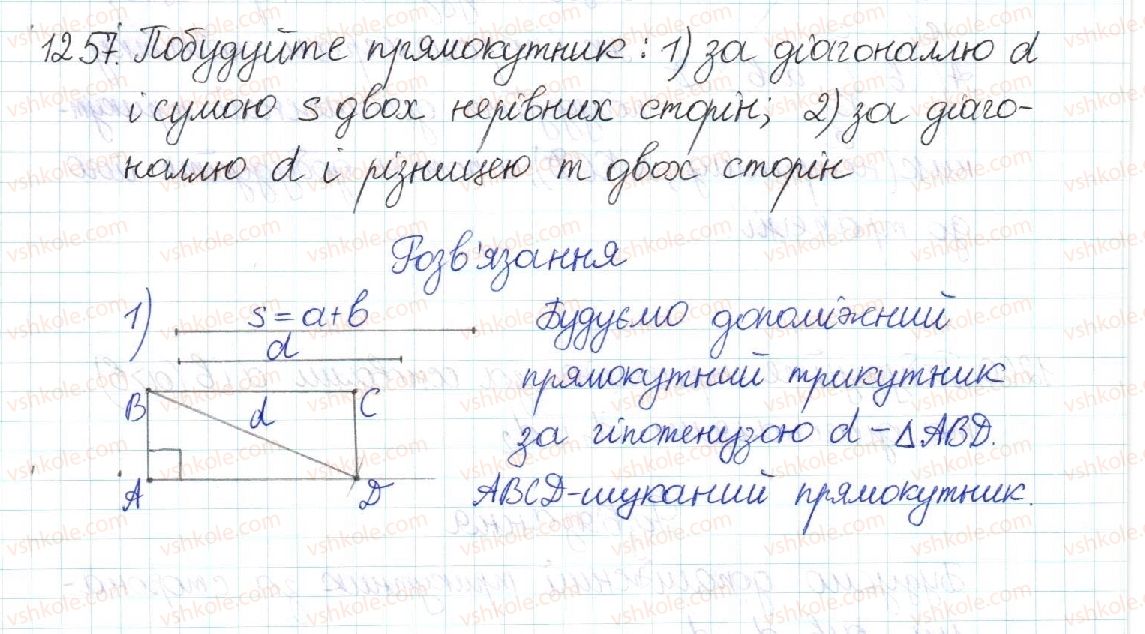 1257. Побудуйте прямокутник: 1) за діагоналлю d
і сумою s двох нерівних сторін; 2) за діаго-
наллю d і різницею m двох сторін
Розв'язання
1)
s = a + b
d
B
C
d
A
D
Будуємо допоміжний
прямокутний трикутник
за гіпотенузою d - △ABD.
ABCD - шуканий прямокутник.
vshkole.com